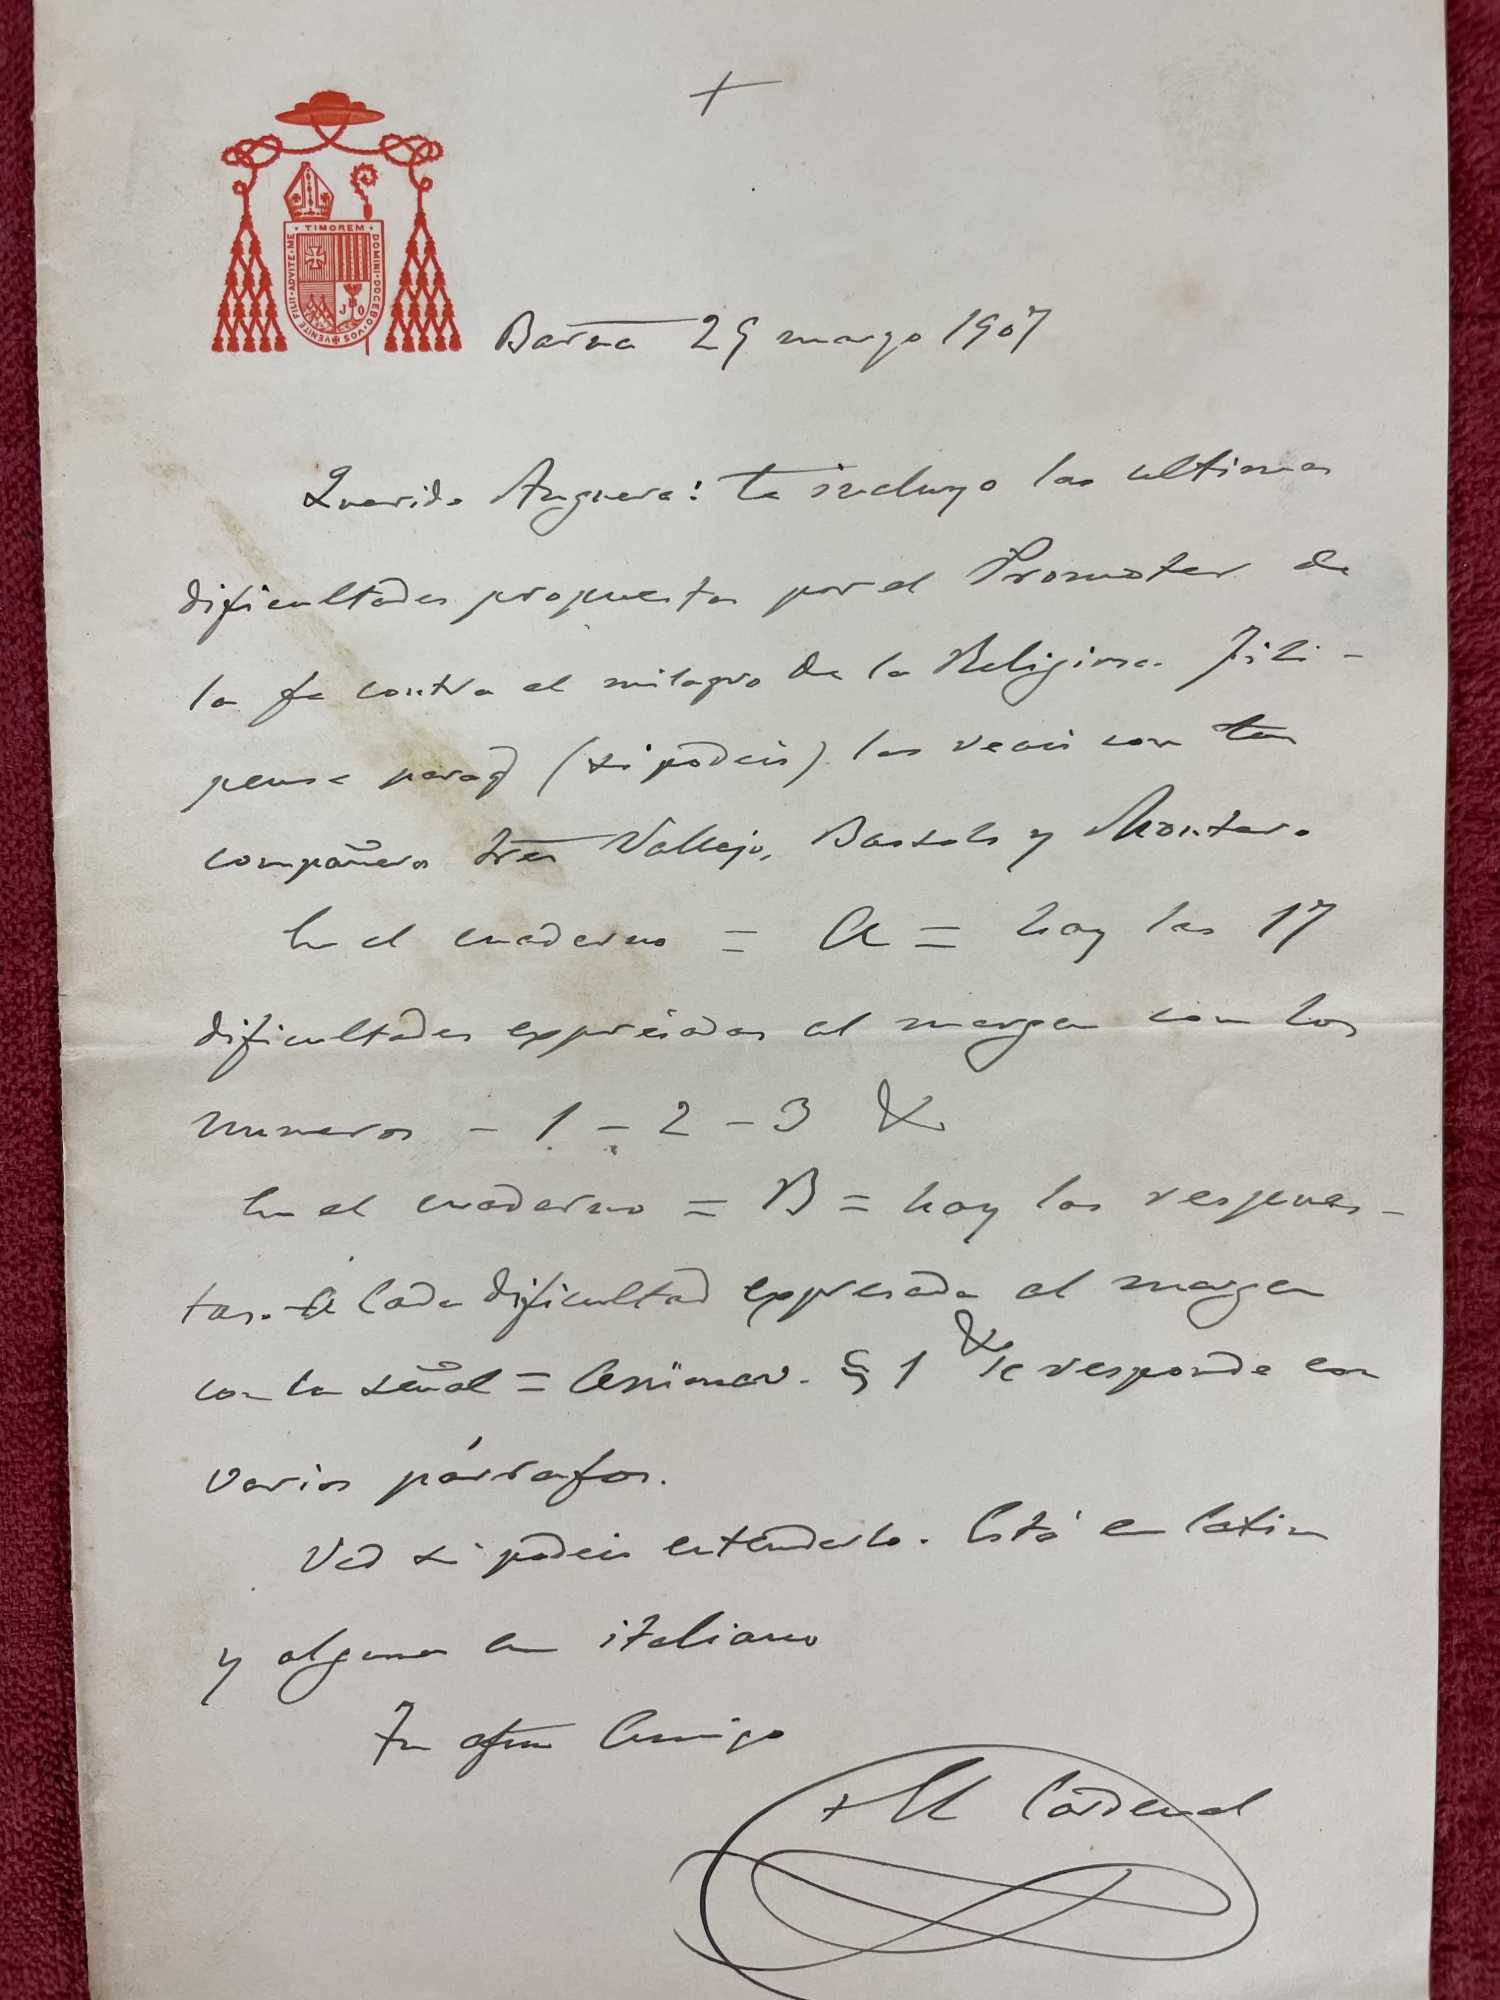 +
TIMOREM DOMINI DOCEBO VOS VENITE FILII ADVITE ME
J O
Barna 29 marzo 1907
Querido Anguera: te incluyo las ultimas
dificultades propuestas por el Promoter de
la fe contra el milagro de la Religiosa Fili-
pense paraq (si podeis) las veais con tus
compañeros Vallejo, Bassols y Montero
En el cuaderno = A = hay las 17
dificultades expresadas al margen con los
numeros - 1 - 2 - 3 &
En el cuaderno = B = hay las respues-
tas. A cada dificultad expresada al margen
con la señal = Animav. § 1 & se responde con
varios párrafos.
Ved si podeis entenderlo. Está en latin
y algunas en italiano
Tu afmo Amigo
+ Cardenal